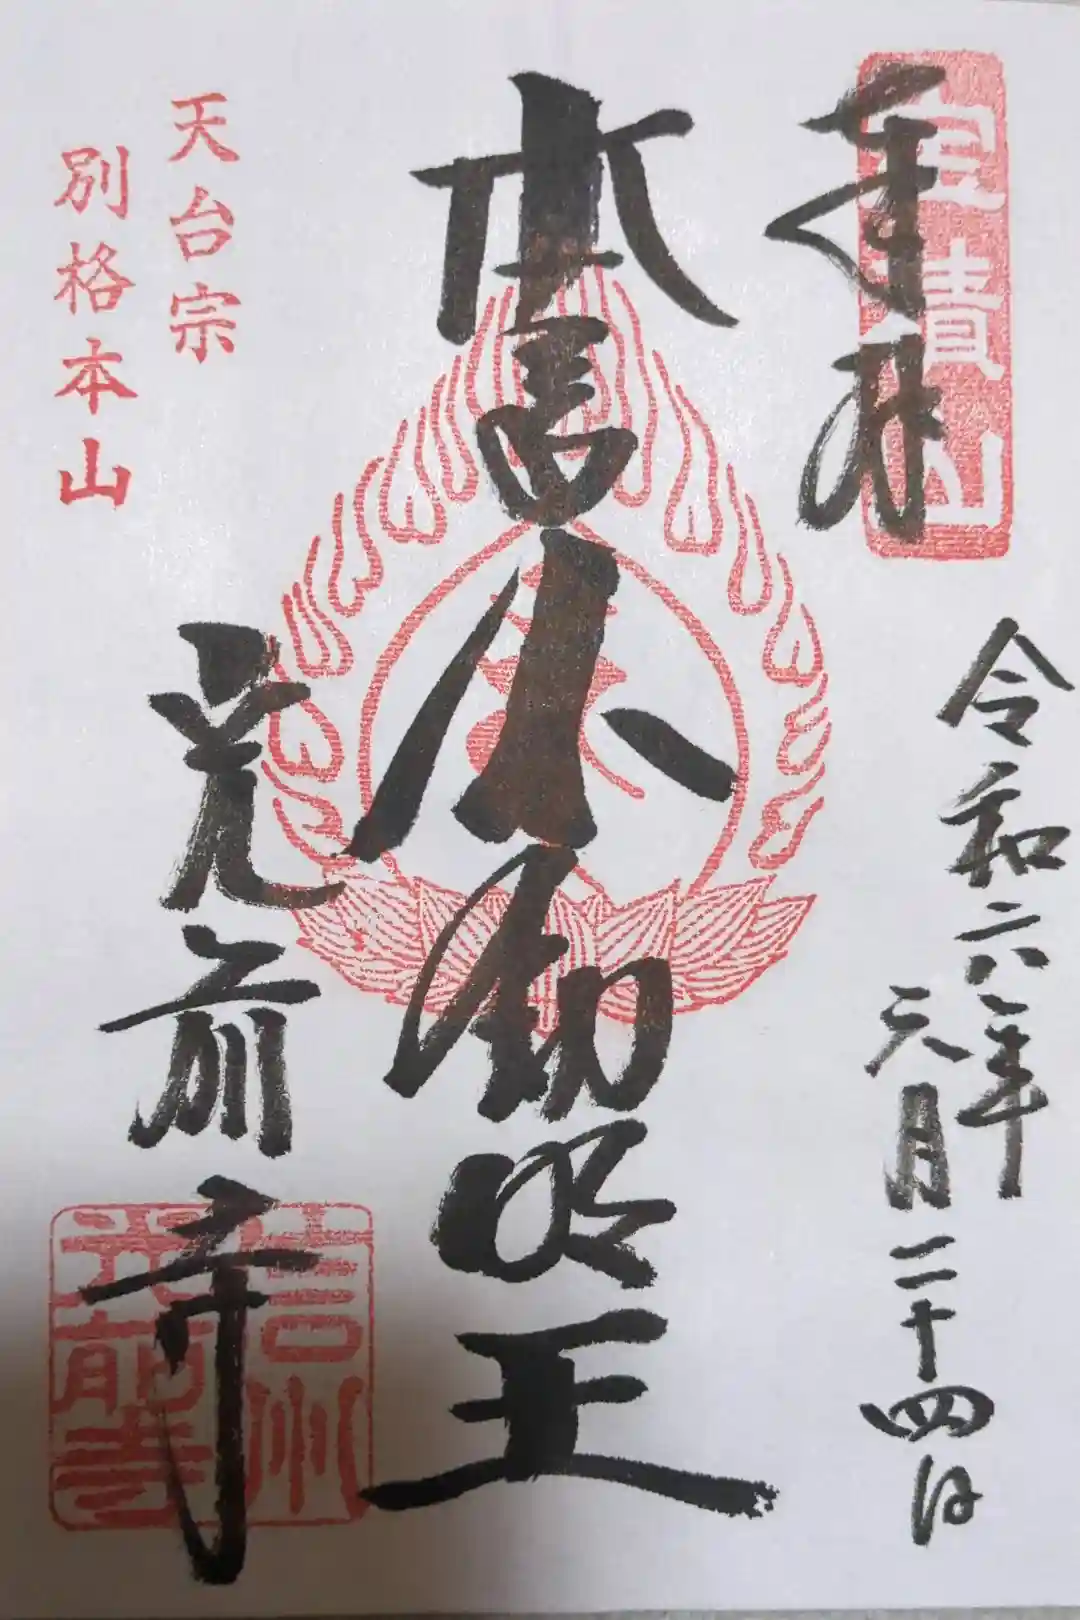 奉拜
宝積山
令和六年
六月二十四日
本尊不動明王
光前寺
信州
光前寺
天台宗
別格本山